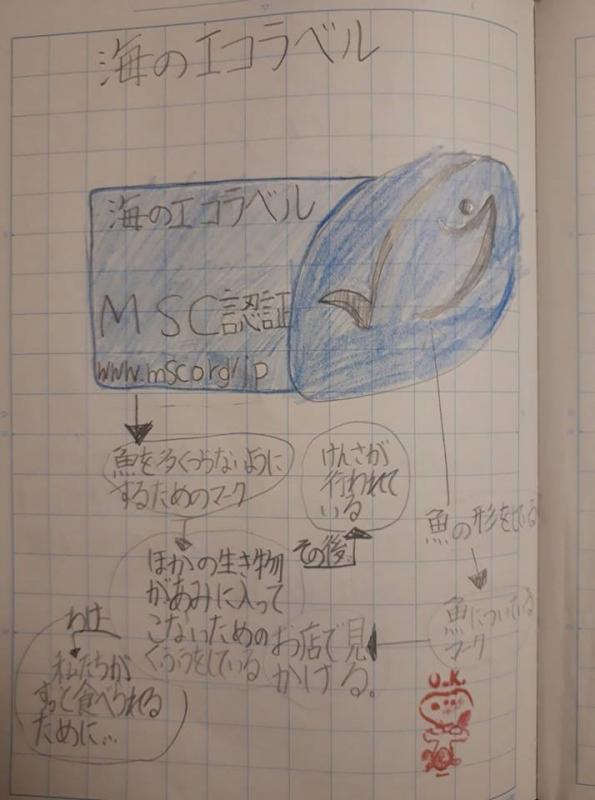 海のエコラベル
海のエコラベル
MSC認証
www.msc.org/jp
魚を多くつらないように
するためのマーク
けんさが
行われて
いる
その後
魚の形をしている
ほかの生き物
があみに入って
こないための
くふうをしている
お店で見
かける。
魚についている
マーク
私たちが
ずっと食べられる
ために...
U.K.